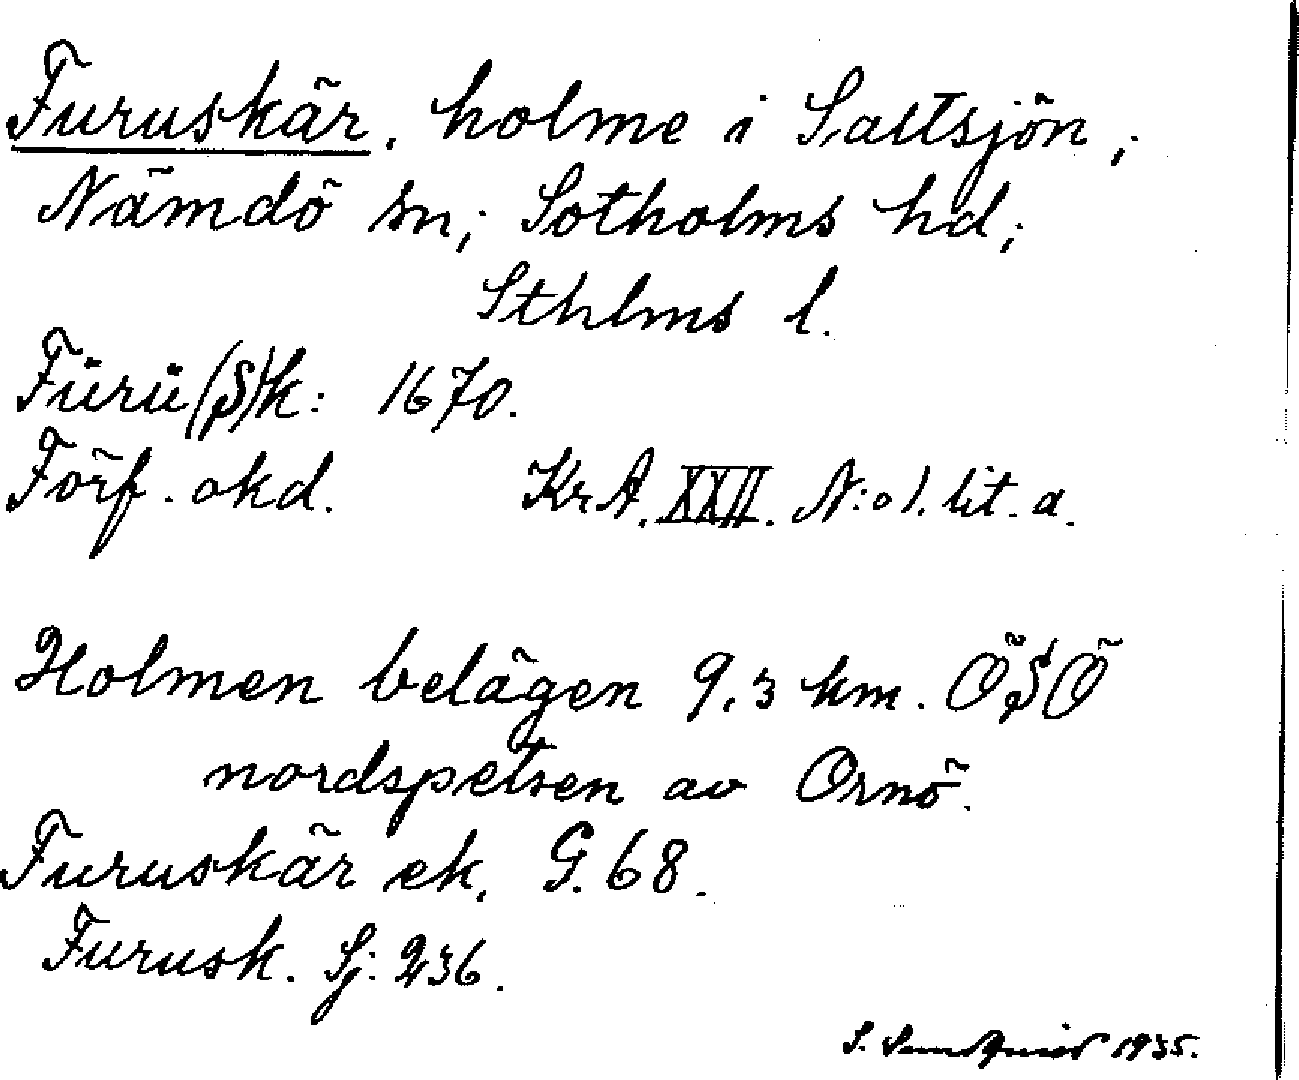 Furuskär, holme i Saltsjön,
Nämdö sn; Sotholms hd;
Sthlms l.
Fürü(S)k: 1670.
Förf. okd. KrA. XXII. N:o 1. lit. a.
Holmen belägen 9,3 km. ÖSÖ
nordspetsen av Ornö.
Furuskär ek. G. 68.
Furusk. Sj: 236.
S. Sundqvist 1935.